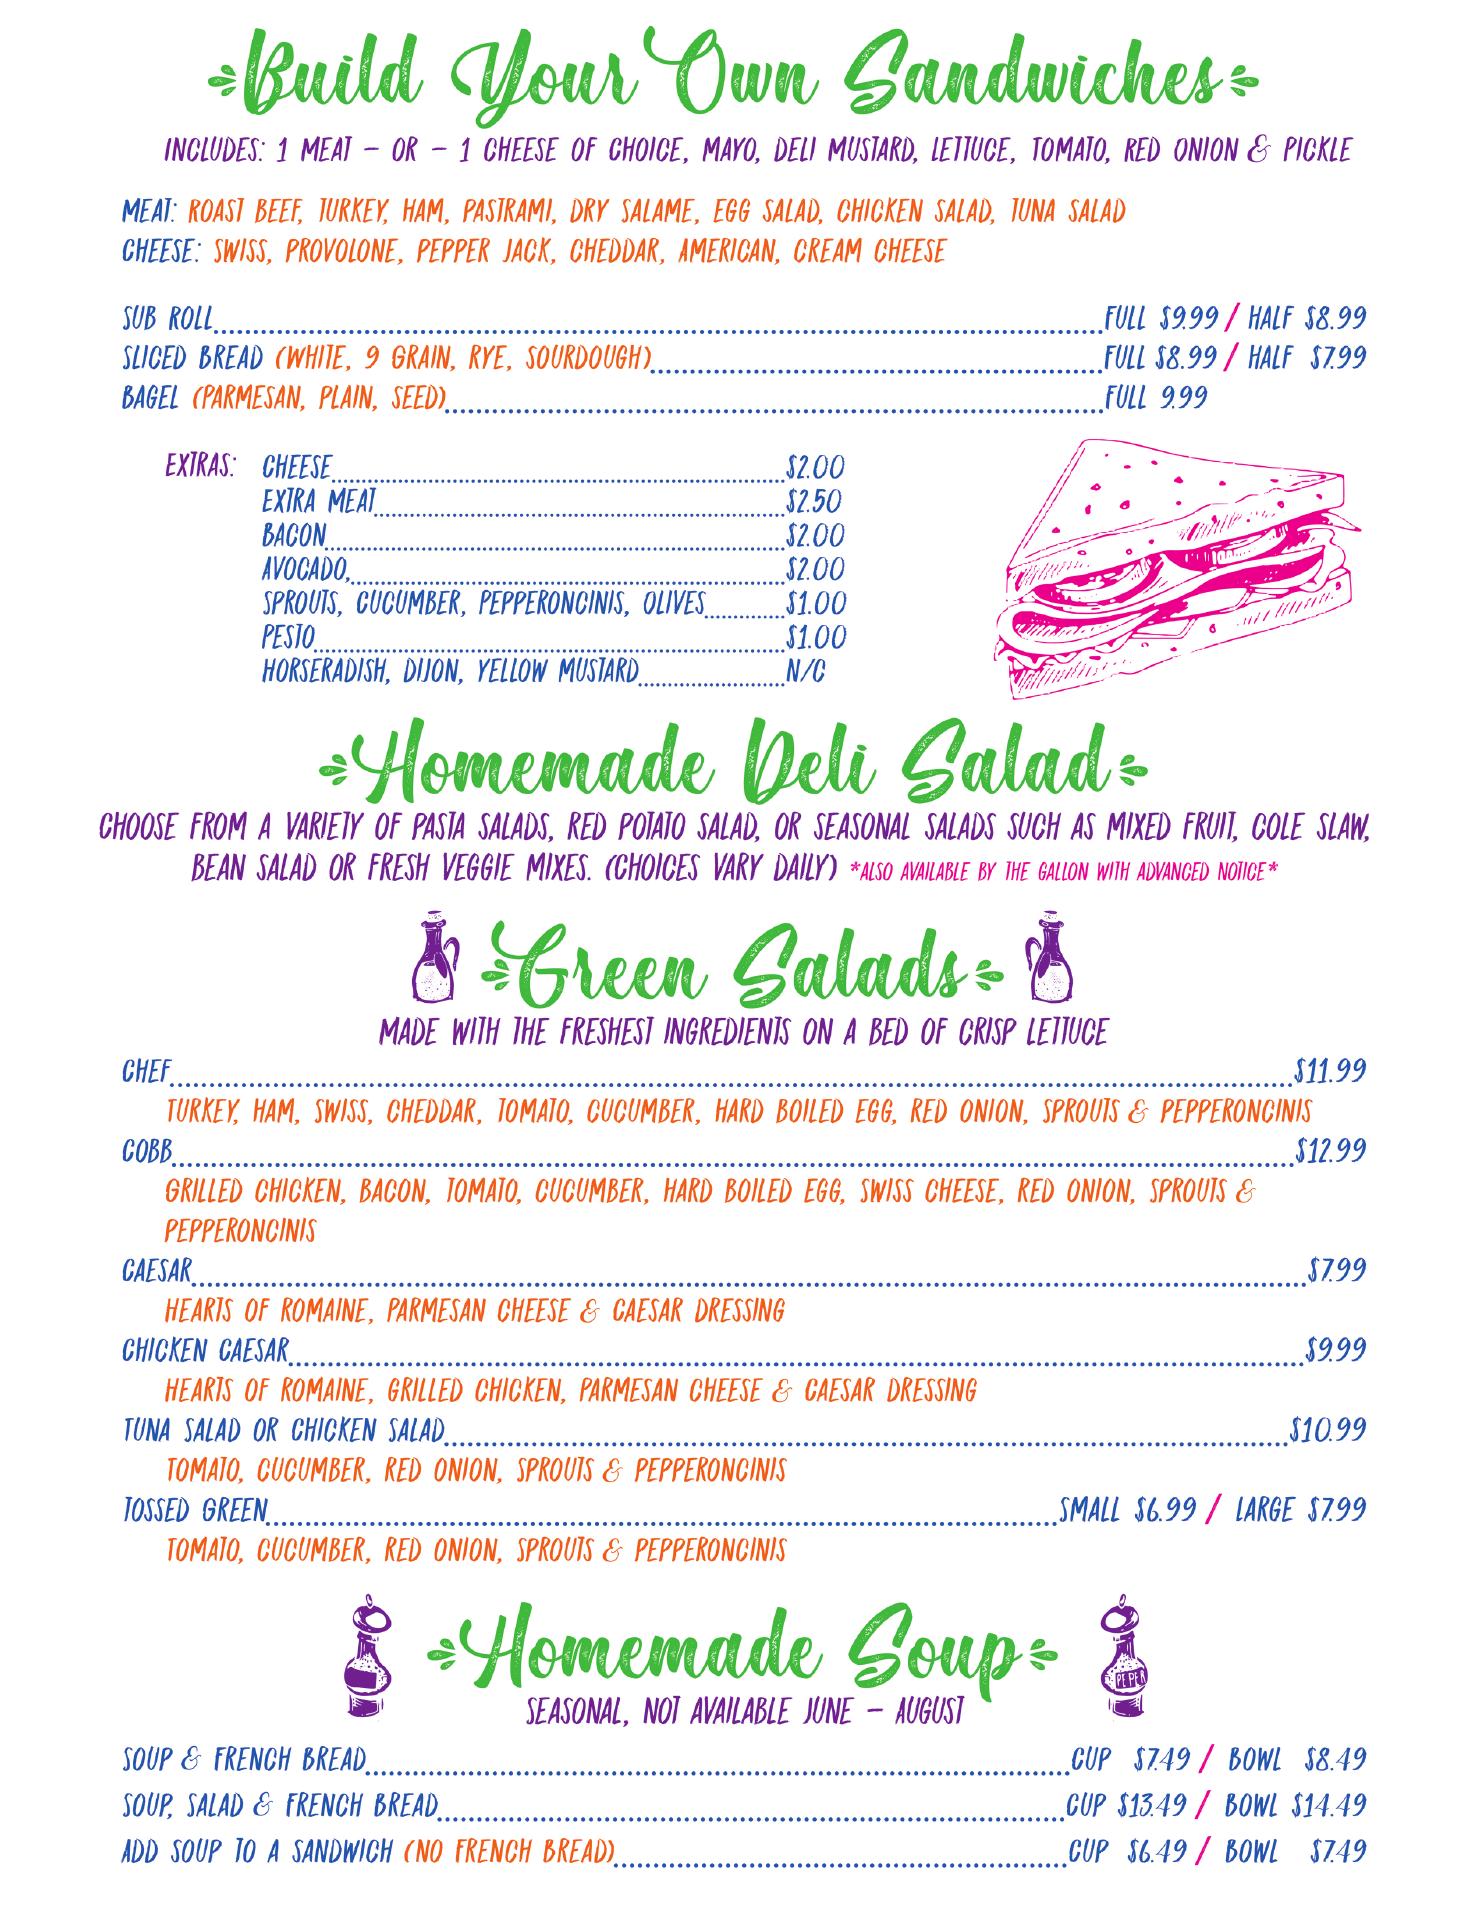 Build Your Own Sandwiches
INCLUDES: 1 MEAT - OR - 1 CHEESE OF CHOICE, MAYO, DELI MUSTARD, LETTUCE, TOMATO, RED ONION & PICKLE
MEAT: ROAST BEEF, TURKEY, HAM, PASTRAMI, DRY SALAME, EGG SALAD, CHICKEN SALAD, TUNA SALAD
CHEESE: SWISS, PROVOLONE, PEPPER JACK, CHEDDAR, AMERICAN, CREAM CHEESE
SUB ROLL FULL $9.99 / HALF $8.99
SLICED BREAD (WHITE, 9 GRAIN, RYE, SOURDOUGH) FULL $8.99 / HALF $7.99
BAGEL (PARMESAN, PLAIN, SEED) FULL 9.99
EXTRAS: CHEESE $2.00
EXTRA MEAT $2.50
BACON $2.00
AVOCADO, $2.00
SPROUTS, CUCUMBER, PEPPERONCINIS, OLIVES $1.00
PESTO $1.00
HORSERADISH, DIJON, YELLOW MUSTARD N/C
Homemade Deli Salad
CHOOSE FROM A VARIETY OF PASTA SALADS, RED POTATO SALAD, OR SEASONAL SALADS SUCH AS MIXED FRUIT, COLE SLAW,
BEAN SALAD OR FRESH VEGGIE MIXES. (CHOICES VARY DAILY) *ALSO AVAILABLE BY THE GALLON WITH ADVANCED NOTICE*
Green Salads
MADE WITH THE FRESHEST INGREDIENTS ON A BED OF CRISP LETTUCE
CHEF $11.99
TURKEY, HAM, SWISS, CHEDDAR, TOMATO, CUCUMBER, HARD BOILED EGG, RED ONION, SPROUTS & PEPPERONCINIS
COBB $12.99
GRILLED CHICKEN, BACON, TOMATO, CUCUMBER, HARD BOILED EGG, SWISS CHEESE, RED ONION, SPROUTS &
PEPPERONCINIS
CAESAR $7.99
HEARTS OF ROMAINE, PARMESAN CHEESE & CAESAR DRESSING
CHICKEN CAESAR $9.99
HEARTS OF ROMAINE, GRILLED CHICKEN, PARMESAN CHEESE & CAESAR DRESSING
TUNA SALAD OR CHICKEN SALAD $10.99
TOMATO, CUCUMBER, RED ONION, SPROUTS & PEPPERONCINIS
TOSSED GREEN SMALL $6.99 / LARGE $7.99
TOMATO, CUCUMBER, RED ONION, SPROUTS & PEPPERONCINIS
Homemade Soup
PEPER
SEASONAL, NOT AVAILABLE JUNE - AUGUST
SOUP & FRENCH BREAD CUP $7.49 / BOWL $8.49
SOUP, SALAD & FRENCH BREAD CUP $13.49 / BOWL $14.49
ADD SOUP TO A SANDWICH (NO FRENCH BREAD) CUP $6.49 / BOWL $7.49